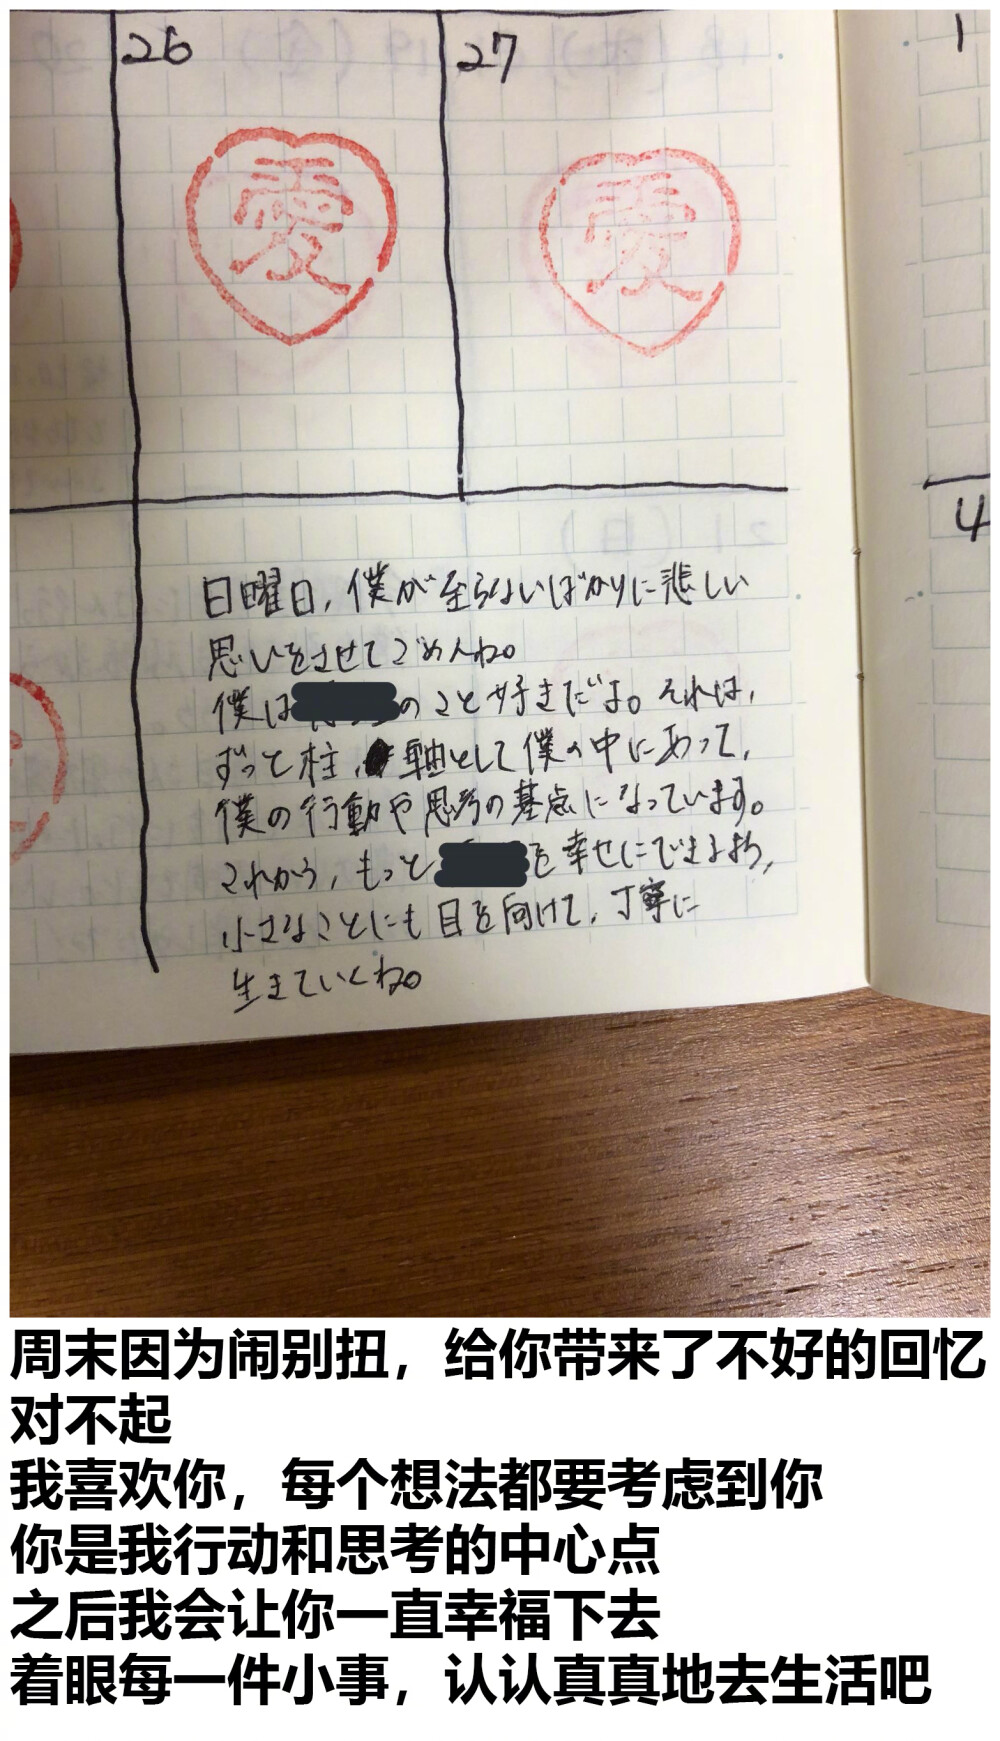 26
27
1
愛
愛
4
日曜日,僕が至らないばかりに悲しい
思いをさせてごめんね。
僕は
のこと好きだよ。それは,
ずっと柱,軸として僕の中にあって,
僕の行動や思考の基点になっています。
これから,もっと
を幸せにできるよう,
小さなことにも目を向けて,丁寧に
生きていくね。
周末因为闹别扭，给你带来了不好的回忆
对不起
我喜欢你，每个想法都要考虑到你
你是我行动和思考的中心点
之后我会让你一直幸福下去
着眼每一件小事，认认真真地去生活吧